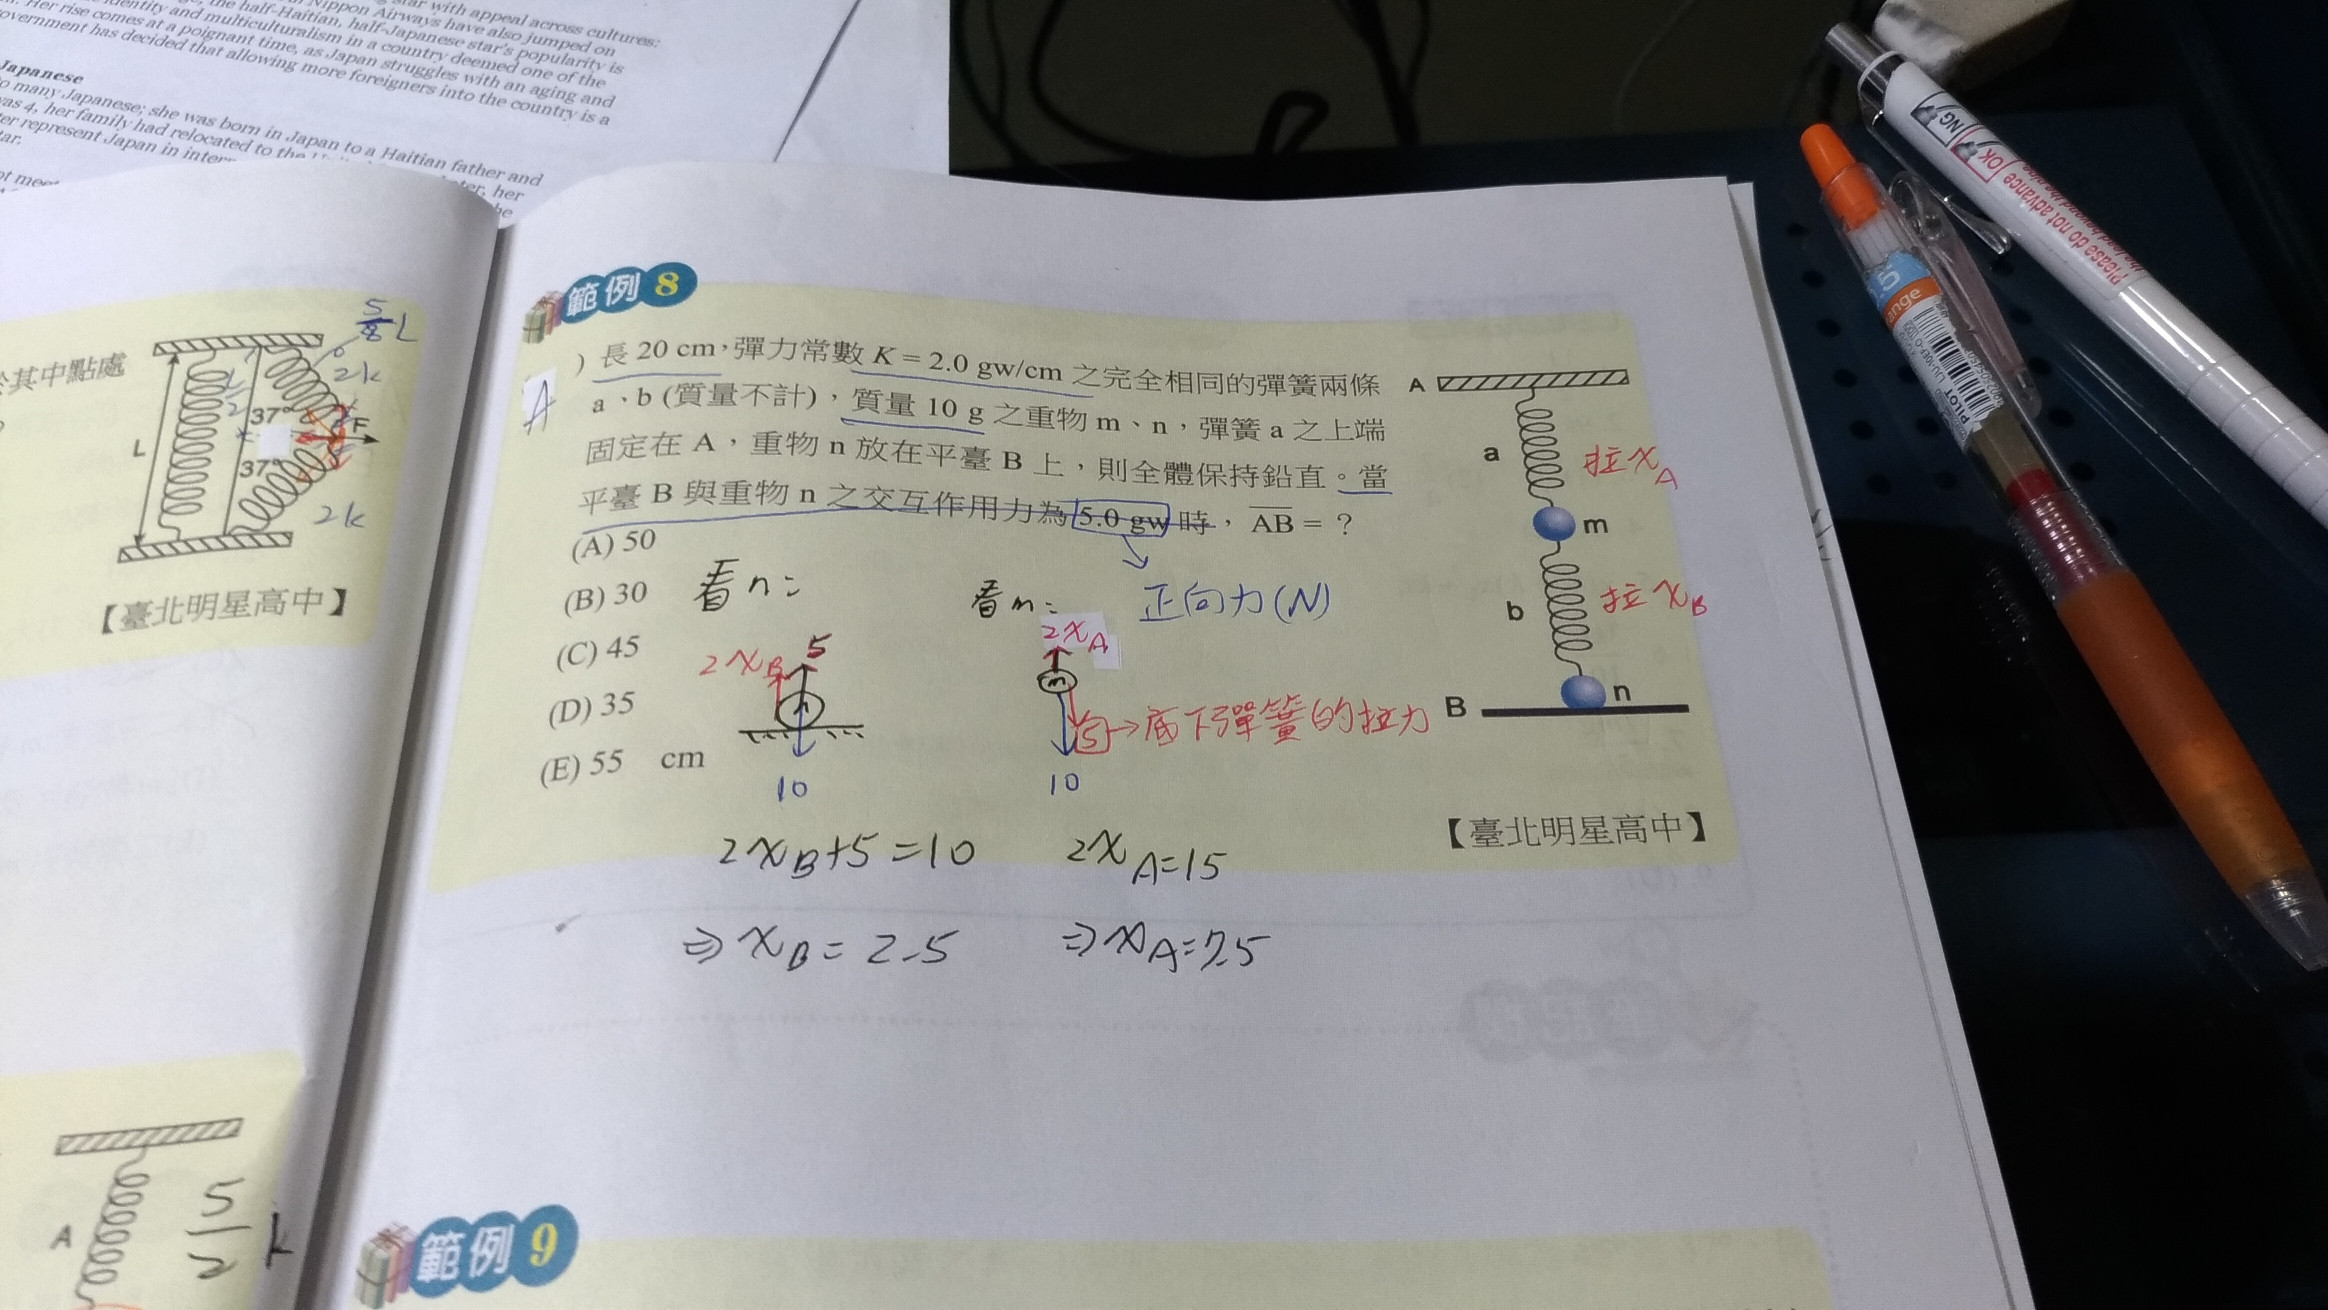 star with appeal across cultures:
Nippon Airways have also jumped on
the half-Haitian, half-Japanese star's popularity is
identity and multiculturalism in a country deemed one of the
Her rise comes at a poignant time, as Japan struggles with an aging and
government has decided that allowing more foreigners into the country is a
Japanese
many Japanese; she was born in Japan to a Haitian father and
was 4, her family had relocated to the
represent Japan in
her
其中點處
L
37°
37°
F
5/8 L
2k
2k
【臺北明星高中】
A
5/2 k
範例 8
A
) 長 20 cm,彈力常數 K = 2.0 gw/cm 之完全相同的彈簧兩條
a、b (質量不計),質量 10 g 之重物 m、n,彈簧 a 之上端
固定在 A,重物 n 放在平臺 B 上,則全體保持鉛直。當
平臺 B 與重物 n 之交互作用力為 5.0 gw 時,AB = ?
(A) 50
(B) 30
(C) 45
(D) 35
(E) 55 cm
正向力(N)
看n:
2xB
5
n
10
2xB+5=10
⇒ xB = 2.5
看m:
2xA
m
5→底下彈簧的拉力
10
2xA=15
⇒xA=7.5
A
a
拉xA
m
b
拉xB
B
n
【臺北明星高中】
範例 9
NG
OK
Please do not advance
PILOT